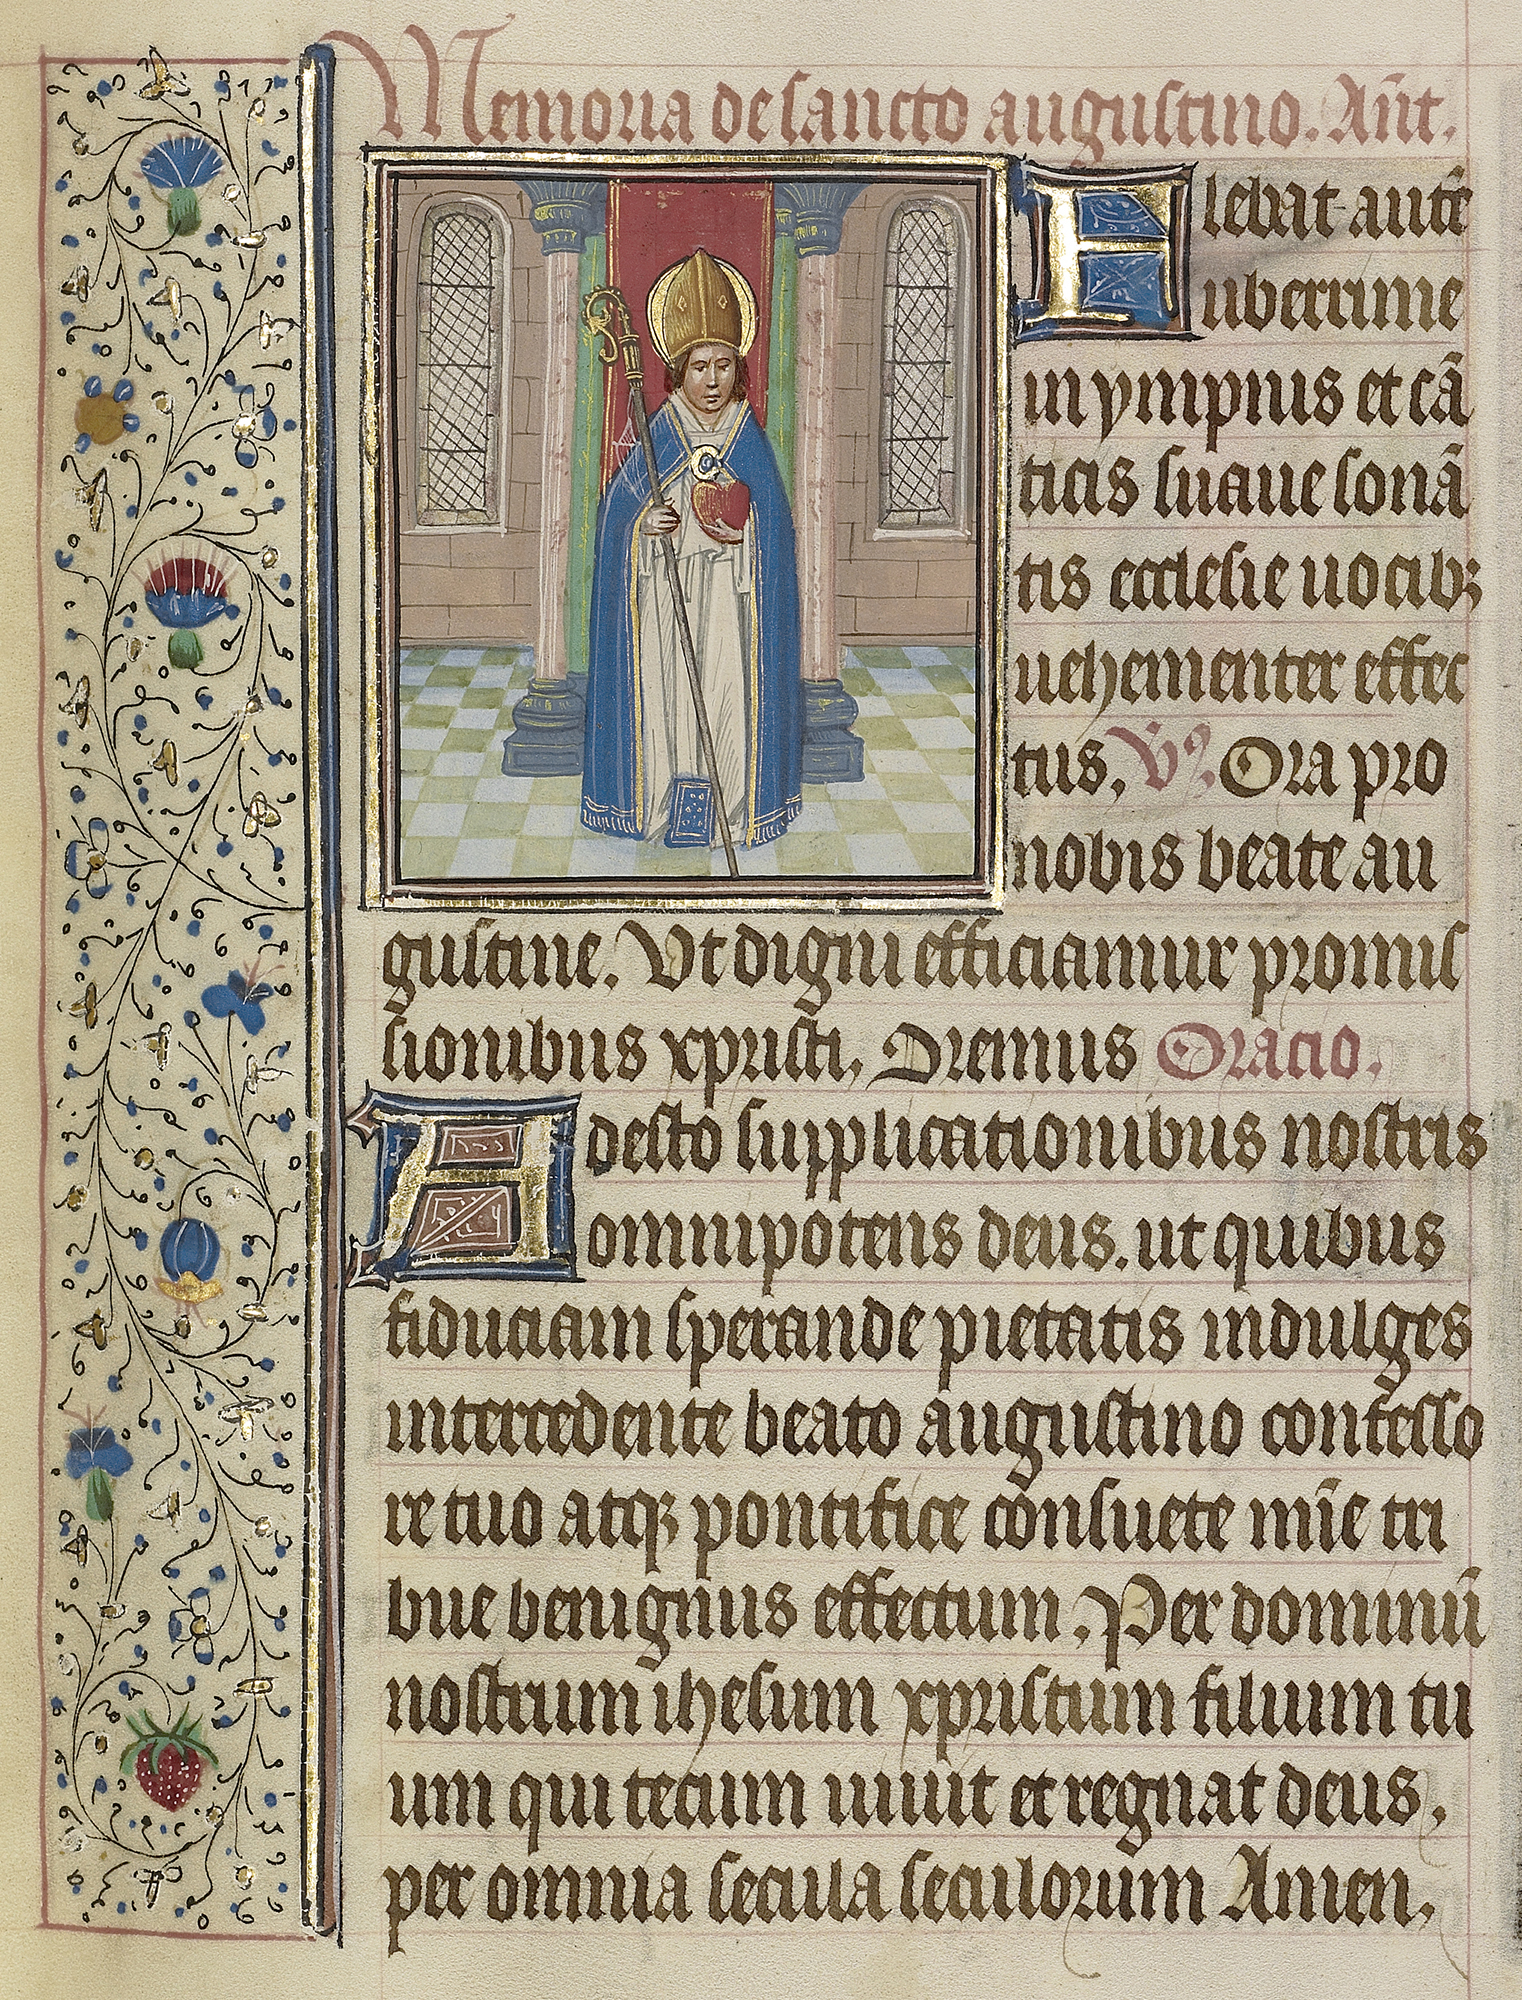 Memoria de sancto augustino. Añt.
Flebat autē
uberrime
in ympnis et cā
ticis suaue sonā
tis ecclesie uocibꝫ
uehementer effec
tus. V̄s. Ora pro
nobis beate au
gustine. Vt digni efficiamur promis
sionibus xpristi. Oremus Oracio.
Adesto supplicationibus nostris
omnipotens deus. ut quibus
fiduciam sperande pietatis indulges
intercedente beato augustino confesso
re tuo atqꝫ pontifice consuete mīe tri
bue benignus effectum. Per dominū
nostrum ihesum xpristum filium tu
um qui tecum uiuit et regnat deus.
per omnia secula seculorum Amen.